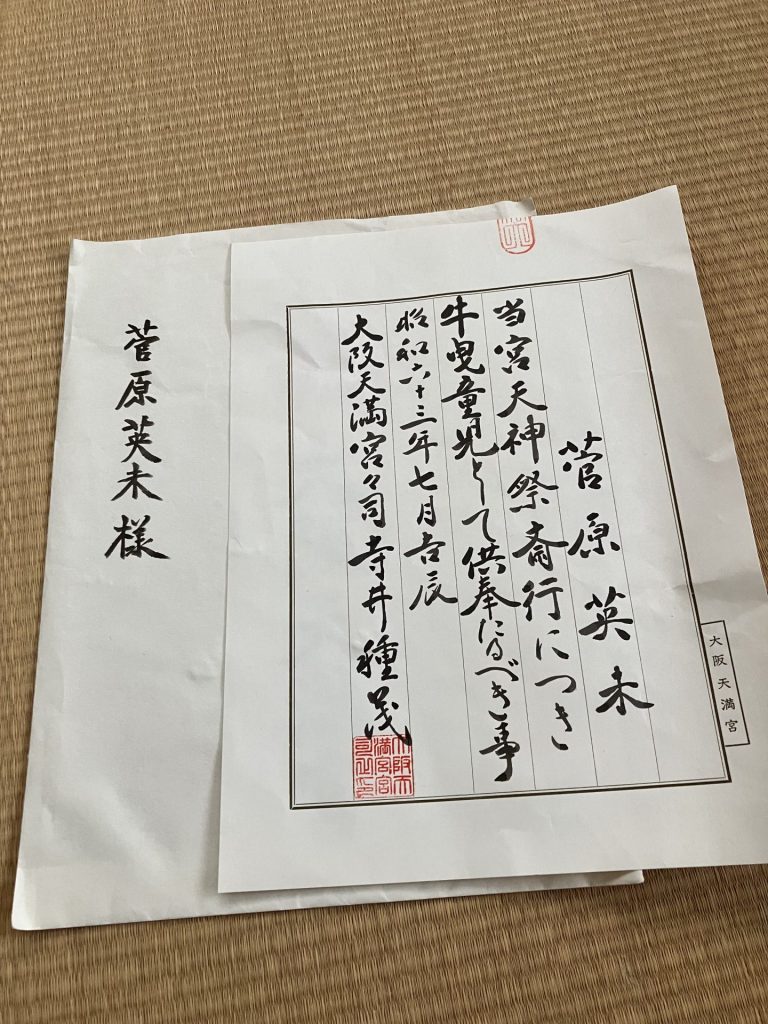 菅原英未
当宮天神祭斎行につき
牛曳童児として供奉たるべき事
昭和六十三年七月吉辰
大阪天満宮々司 寺井種茂
大阪天満宮
菅原英未様